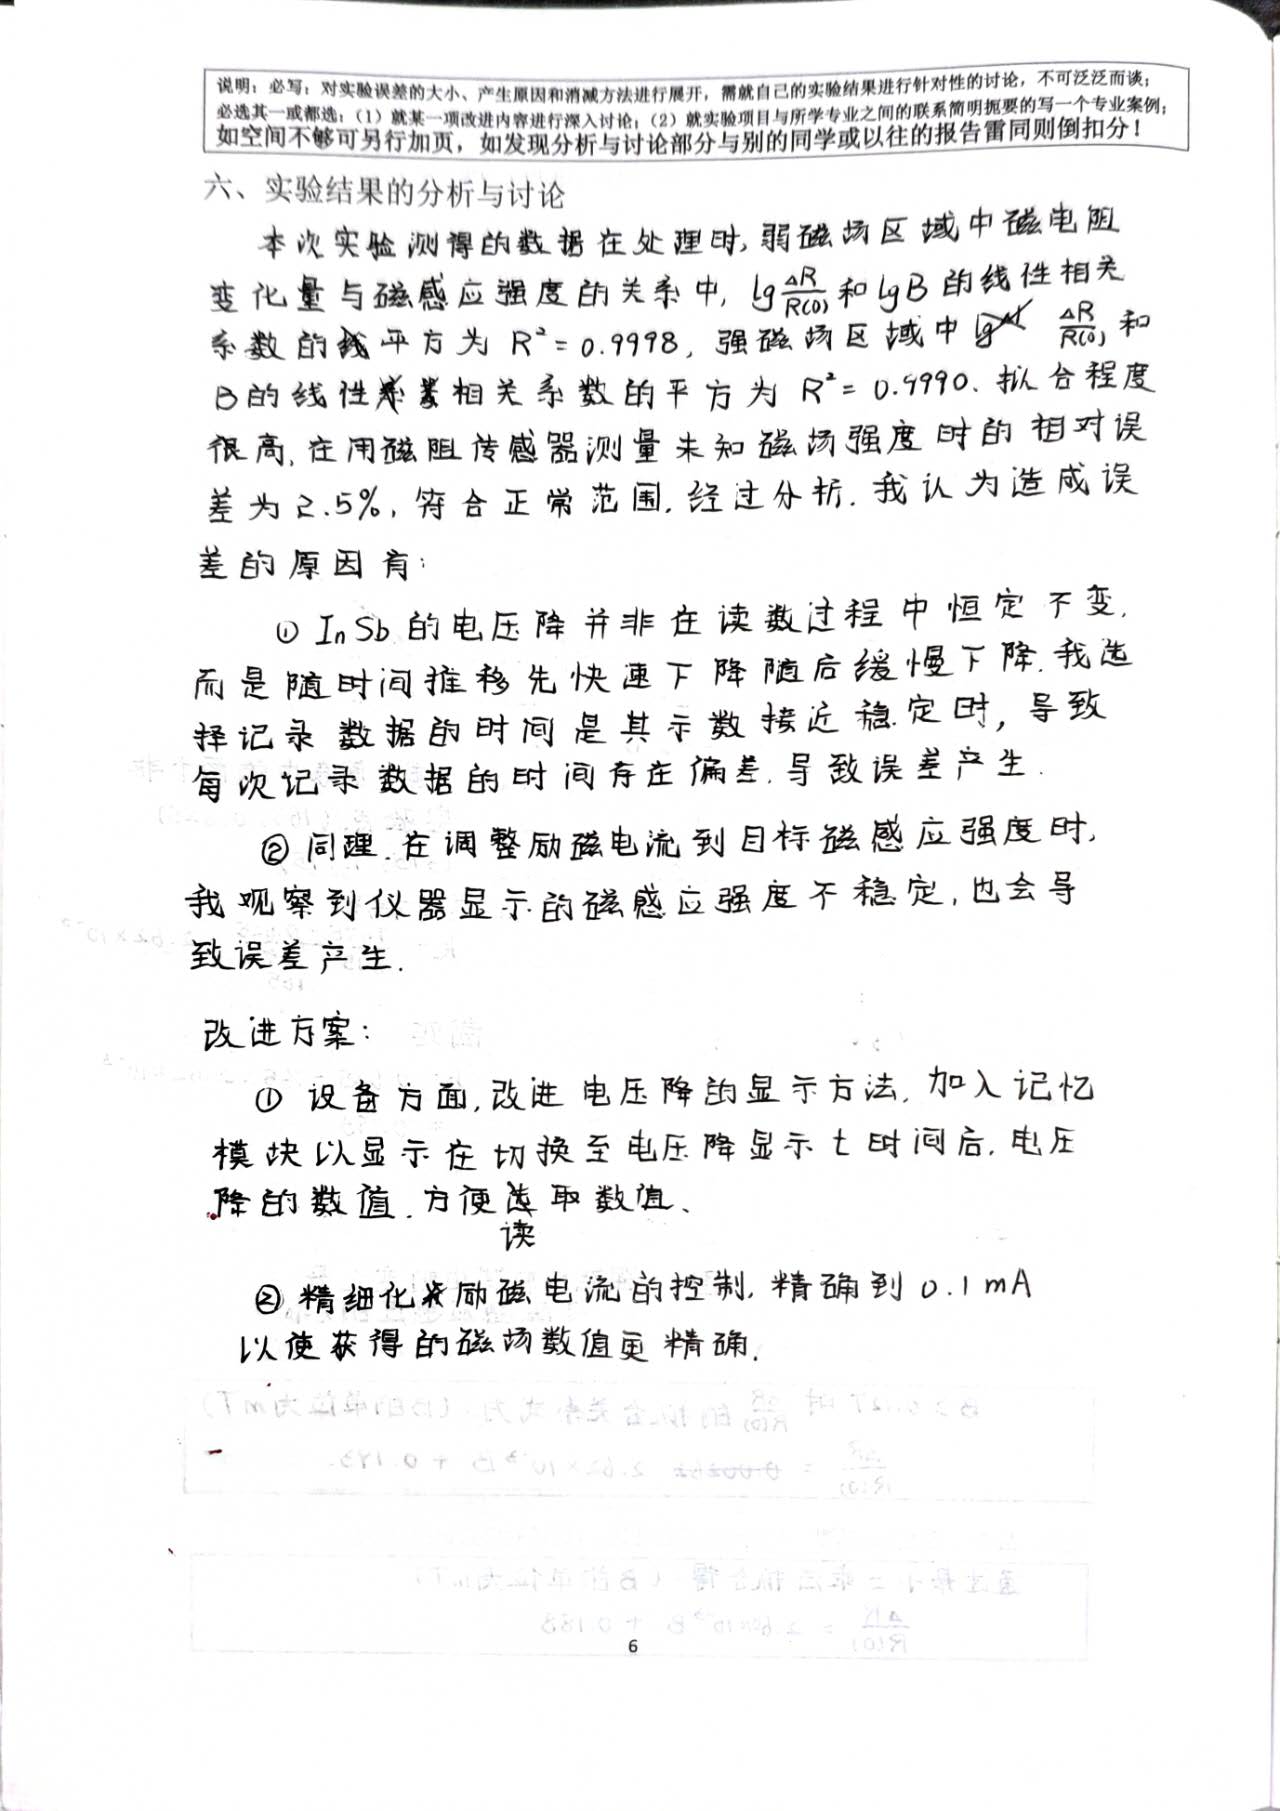 说明：必写：对实验误差的大小、产生原因和消减方法进行展开，需就自己的实验结果进行针对性的讨论，不可泛泛而谈；
必选其一或都选：（1）就某一项改进内容进行深入讨论；（2）就实验项目与所学专业之间的联系简明扼要的写一个专业案例；
如空间不够可另行加页，如发现分析与讨论部分与别的同学或以往的报告雷同则倒扣分！
六、实验结果的分析与讨论
本次实验测得的数据在处理时,弱磁场区域中磁电阻
变化量与磁感应强度的关系中, lg ΔR/R(0) 和 lgB 的线性相关
系数的平方为 R² = 0.9998, 强磁场区域中 ΔR/R(0) 和
B的线性相关系数的平方为 R² = 0.9990、拟合程度
很高, 在用磁阻传感器测量未知磁场强度时的相对误
差为2.5%, 符合正常范围. 经过分析. 我认为造成误
差的原因有:
① InSb的电压降并非在读数过程中恒定不变,
而是随时间推移先快速下降随后缓慢下降. 我选
择记录数据的时间是其示数接近稳定时, 导致
每次记录数据的时间存在偏差. 导致误差产生.
② 同理. 在调整励磁电流到目标磁感应强度时,
我观察到仪器显示的磁感应强度不稳定, 也会导
致误差产生.
改进方案:
① 设备方面, 改进电压降的显示方法, 加入记忆
模块以显示在切换至电压降显示 t 时间后, 电压
降的数值. 方便读取数值、
② 精细化励磁电流的控制, 精确到 0.1 mA
以使获得的磁场数值更精确.
6